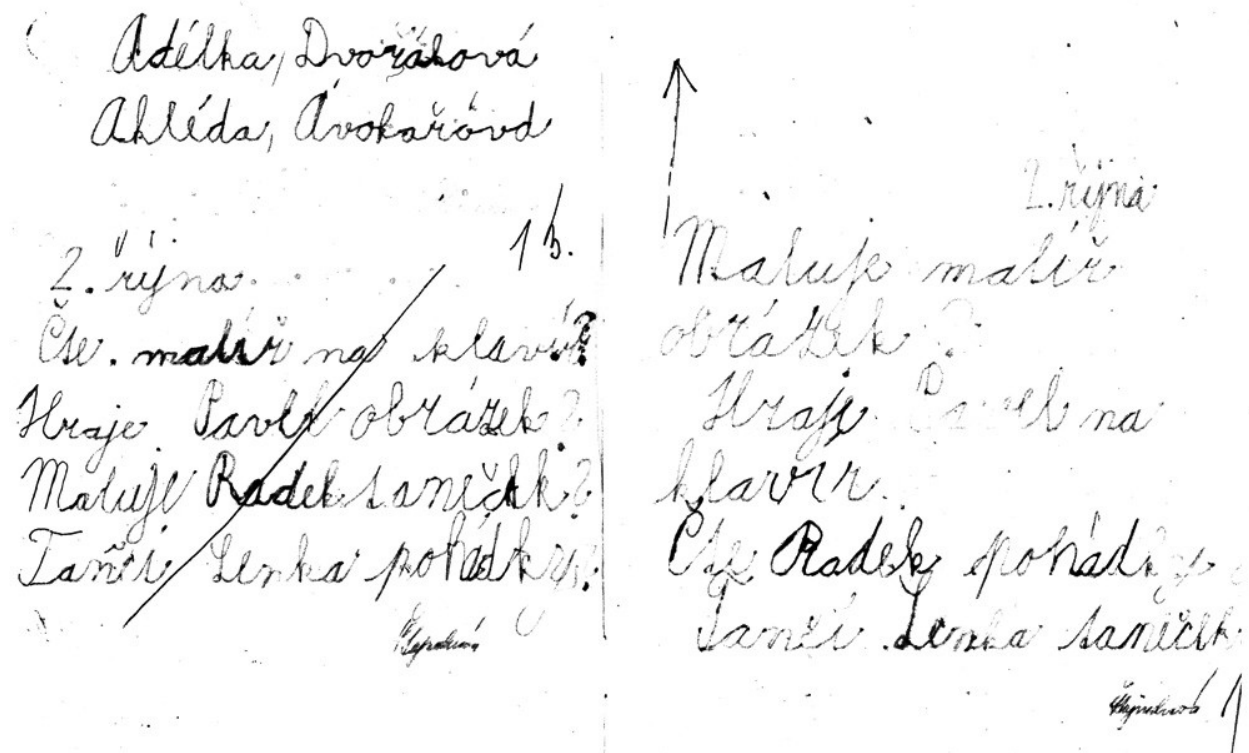 Adélka, Dvořáková
Akléda, Ávokařóvd
1 b.
2. října.
Čte. malíř na klavír?
Hraje Pavel obrázek?
Maluje Radek taneček?
Tančí Lenka pohádky?
2. října
Maluje malíř
obrázek?
Hraje Pavel na
klavír.
Čte Radek pohádky
Tančí Lenka taneček
1